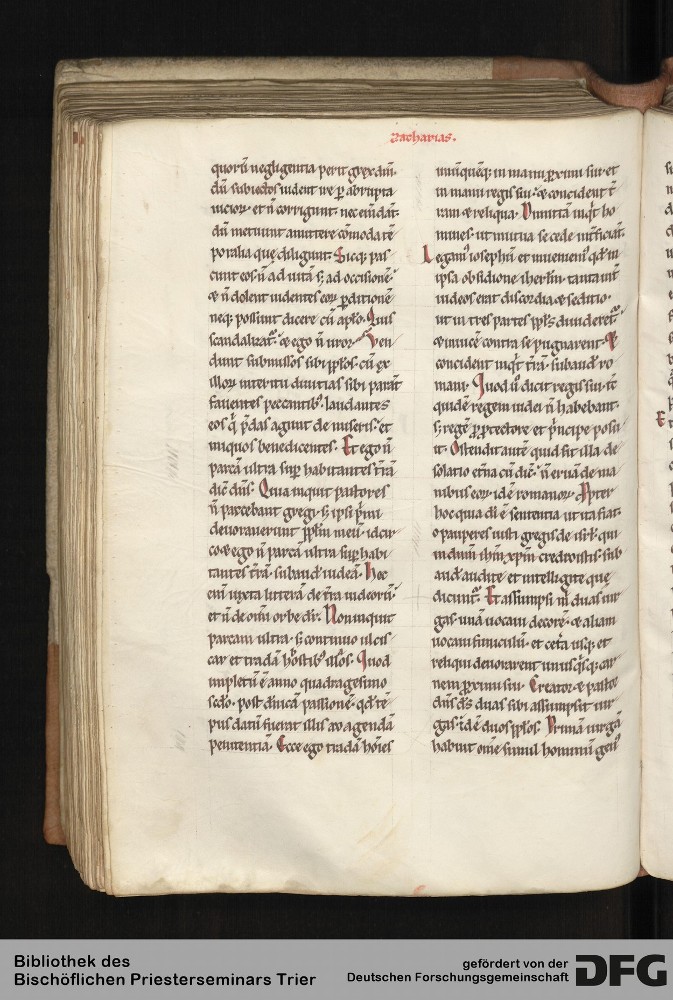 Zacharias.
quorū negligentia perit grex dn̄i.
dū subiectos uident ire ꝑ abrupta
uicior᷑ et n̄ corrigunt. nec emdant.
dū metuunt amittere cōmoda tē
poralia que diligunt. Sicq; pas
cunt eos n̄ ad uitā s; ad occisionē.
⁊ n̄ dolent uidentes eor᷑ ꝑditionē
neq; possunt dicere cū aplo. Quis
scandalizat᷑. ⁊ ego n̄ uror. Ven
dunt submissos sibi pplos. cū ex
illor᷑ interitu diuitias sibi parāt
fauentes peccantib;. laudantes
eos q̄ p̄das agunt de miseris. et
iniquos benedicentes. Et ego n̄
parcā ultra sup habitantes t̄rā
dic̄ dn̄s. Quia inquit pastores
n̄ parcebant gregi. s; ipsi p̄mi
deuorauerunt pplm meū. idcir
co ⁊ ego n̄ parcā ultra sup habi
tantes t̄rā. subaud̄ iudeā. Hec
eni iuxta litterā de t̄ra iudeorū.
et n̄ de om̄i orbe dr̄. Non inquit
parcam ultra. s; continuo ulcis
car et tradā hostib; illos. Quod
impletū ē anno quadragesimo
scdo. post dn̄icā passionē. qd̄ tē
pus datū fuerat illis ad agendā
penitentiā. Ecce ego tradā hoīes
unūquēq; in manu p̄ximi sui. et
in manu regis sui. ⁊ concident t̄
ram ⁊ reliqua. Dimittā inq̄t ho
mines. ut mutua se cede int̄ficiāt.
Legam᷒ iosephū et inueniem᷒ qd̄ in
ipsa obsidione ihrlm̄. tanta int̄
iudeos erat discordia ⁊ seditio.
ut in tres partes ppls diuideret᷑
⁊ inuicē contra se pugnarent. Et
concident inq̄t t̄rā. subaud̄ ro
mani. Quod ū dicit regis sui. tc̄
quidē regem iudei n̄ habebant.
s; regē ꝓ ꝓtectore et p̄ncipe posu
it. Ostendit autē quod sit illa de
solatio et̄na cū dic̄. n̄ eruā de ma
nibus eor᷑. id ē romanor᷑. Propter
hoc quia di ē sententia ut ita fiat.
o pauperes iusti gregis de isr̄l. qui
in dn̄m ihm̄ xpm̄ credidistis. sub
aud̄ audite et intelligite que
dicunt᷑. Et assumpsi m̄ duas uir
gas. unā uocaui decorē. ⁊ aliam
uocaui funiculū. et cet̄a usq; et
reliqui deuorarent unusq̄sq; car
nem p̄ximi sui. Creator ⁊ pastor
dn̄s d̄s duas sibi assumpsit uir
gas. id ē duos pplos. Primā uirgā
habuit om̄e simul hominum gen᷒
Bibliothek des
Bischöflichen Priesterseminars Trier
gefördert von der
Deutschen Forschungsgemeinschaft
DFG